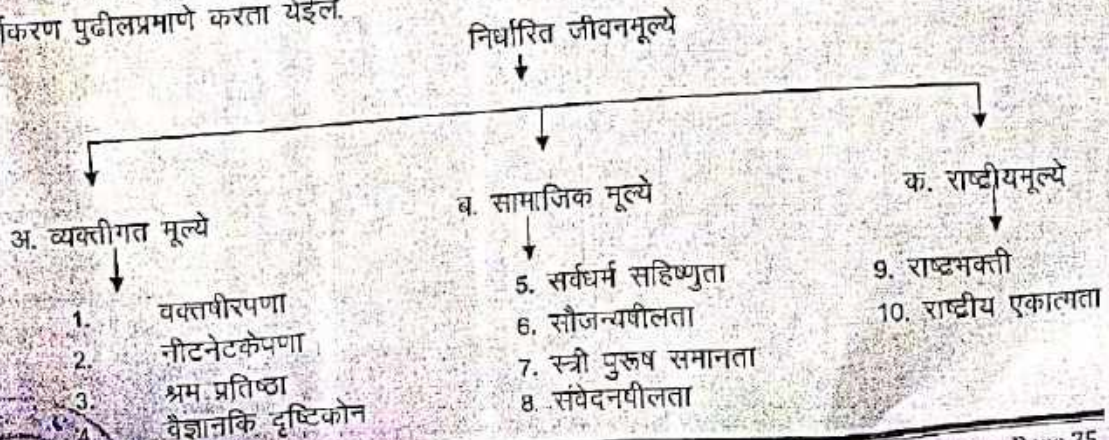 करण पुढीलप्रमाणे करता येईल.
निर्धारित जीवनमूल्ये
अ. व्यक्तीगत मूल्ये
1. वक्तषीरपणा
2. नीटनेटकेपणा
3. श्रम प्रतिष्ठा
4. वैज्ञानकि दृष्टिकोन
ब. सामाजिक मूल्ये
5. सर्वधर्म सहिष्णुता
6. सौजन्यषीलता
7. स्त्री पुरूष समानता
8. संवेदनषीलता
क. राष्ट्रीयमूल्ये
9. राष्ट्रभक्ती
10. राष्ट्रीय एकात्मता